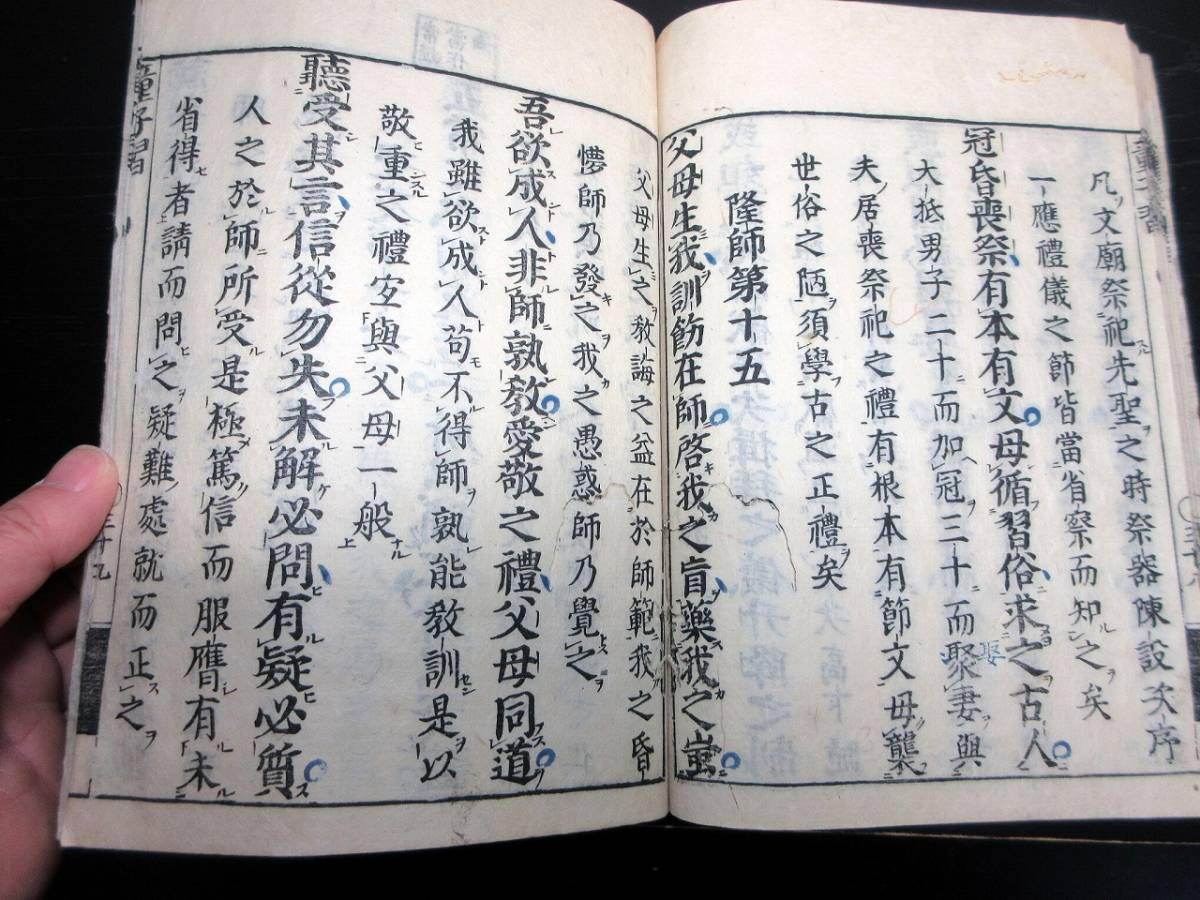 凡文廟祭祀先聖之時祭器陳設矣序
一應禮儀之節皆當省察而知之矣
冠昏喪祭有本有文毋循習俗求之古人
大抵男子二十而加冠三十而聚妻與
娶
夫居喪祭祀之禮有根本有節文毋襲
世俗之陋須學古之正禮矣
隆師第十五
父母生我訓飭在師啓我之盲藥我之蚩
父母生之教誨之益在於師範我之昏
懜師乃發之我之愚惑師乃覺之
吾欲成人非師孰教愛敬之禮父母同道
我雖欲成人苟不得師孰能教訓是以
敬重之禮宜與父母一般
聽受其言信從勿失未解必問有疑必質
人之於師所受是極篤信而服膺有未
省得者請而問之疑難處就而正之
三十九